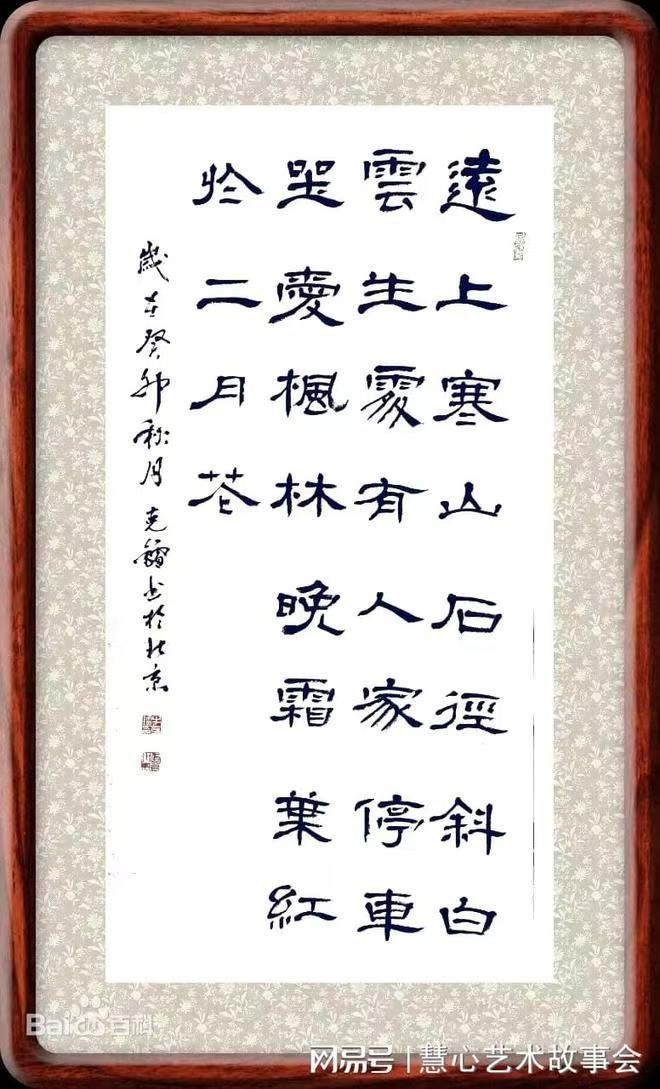 遠上寒山石徑斜白
雲生處有人家停車
坐愛楓林晚霜葉紅
於二月花
歲在癸卯秋月克书於北京
Baidu百科
网易号 | 慧心艺术故事会